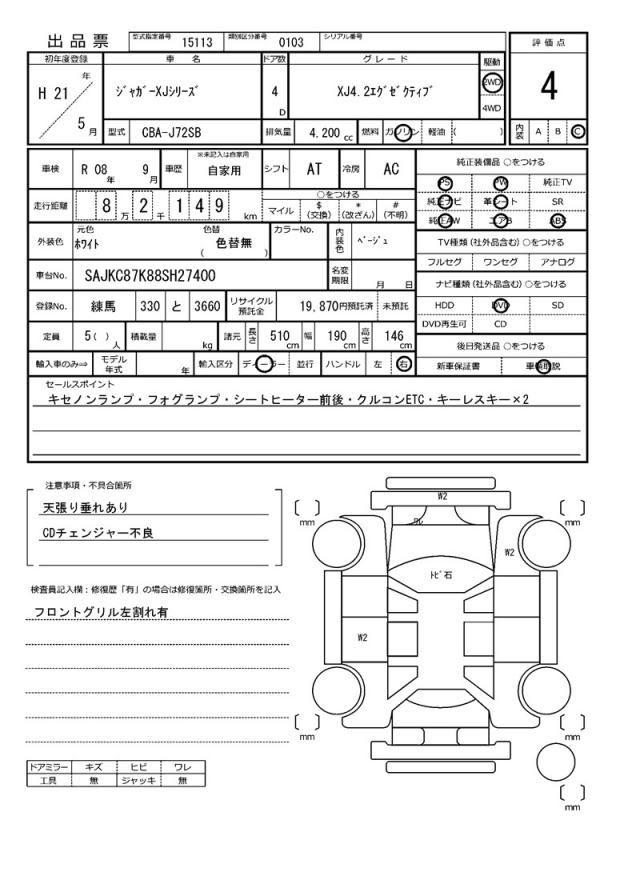 出品票 型式指定番号 15113 類別区分番号 0103 シリアル番号
評価点
4
初年度登録 車名 ドア数 グレード 駆動
H 21 年 5 月
ジャガーXJシリーズ 4 D XJ4.2エグゼクティブ 2WD
4WD
型式 CBA-J72SB 排気量 4.200 cc 燃料 ガソリン 軽油 ( )
内装 A B C
車検 R 08 年 9 月 車歴 ※未記入は自家用 自家用 シフト AT 冷房 AC
走行距離 8 万 2 千 1 4 9 km
○をつける
マイル $ (交換) * (改ざん) # (不明)
外装色 元色 ホワイト 色替 ( 色替無 ) カラーNo. 内装色 ベージュ
車台No. SAJKC87K88SH27400 名変期限 月 日
登録No. 練馬 330 と 3660 リサイクル預託金 19,870円預託済 未預託
定員 5( ) 人 積載量 kg 諸元 長さ 510 cm 幅 190 cm 高さ 146 cm
輸入車のみ⇒ モデル年式 年 輸入区分 ディーラー 並行 ハンドル 左 右
純正装備品 ○をつける
PS PW 純正TV
純正ナビ 革シート SR
純正AW エアB ABS
TV種類 (社外品含む) ○をつける
フルセグ ワンセグ アナログ
ナビ種類 (社外品含む) ○をつける
HDD DVD SD
DVD再生可 CD
後日発送品 ○をつける
新車保証書 車輌取説
セールスポイント
キセノンランプ・フォグランプ・シートヒーター前後・クルコンETC・キーレスキー×2
注意事項・不具合箇所
天張り垂れあり
CDチェンジャー不良
検査員記入欄：修復歴「有」の場合は修復箇所・交換箇所を記入
フロントグリル左割れ有
ドアミラー キズ ヒビ ワレ
工具 無 ジャッキ 無
W2
ワレ
W2
トビ石
W2
mm
mm
mm
mm
mm